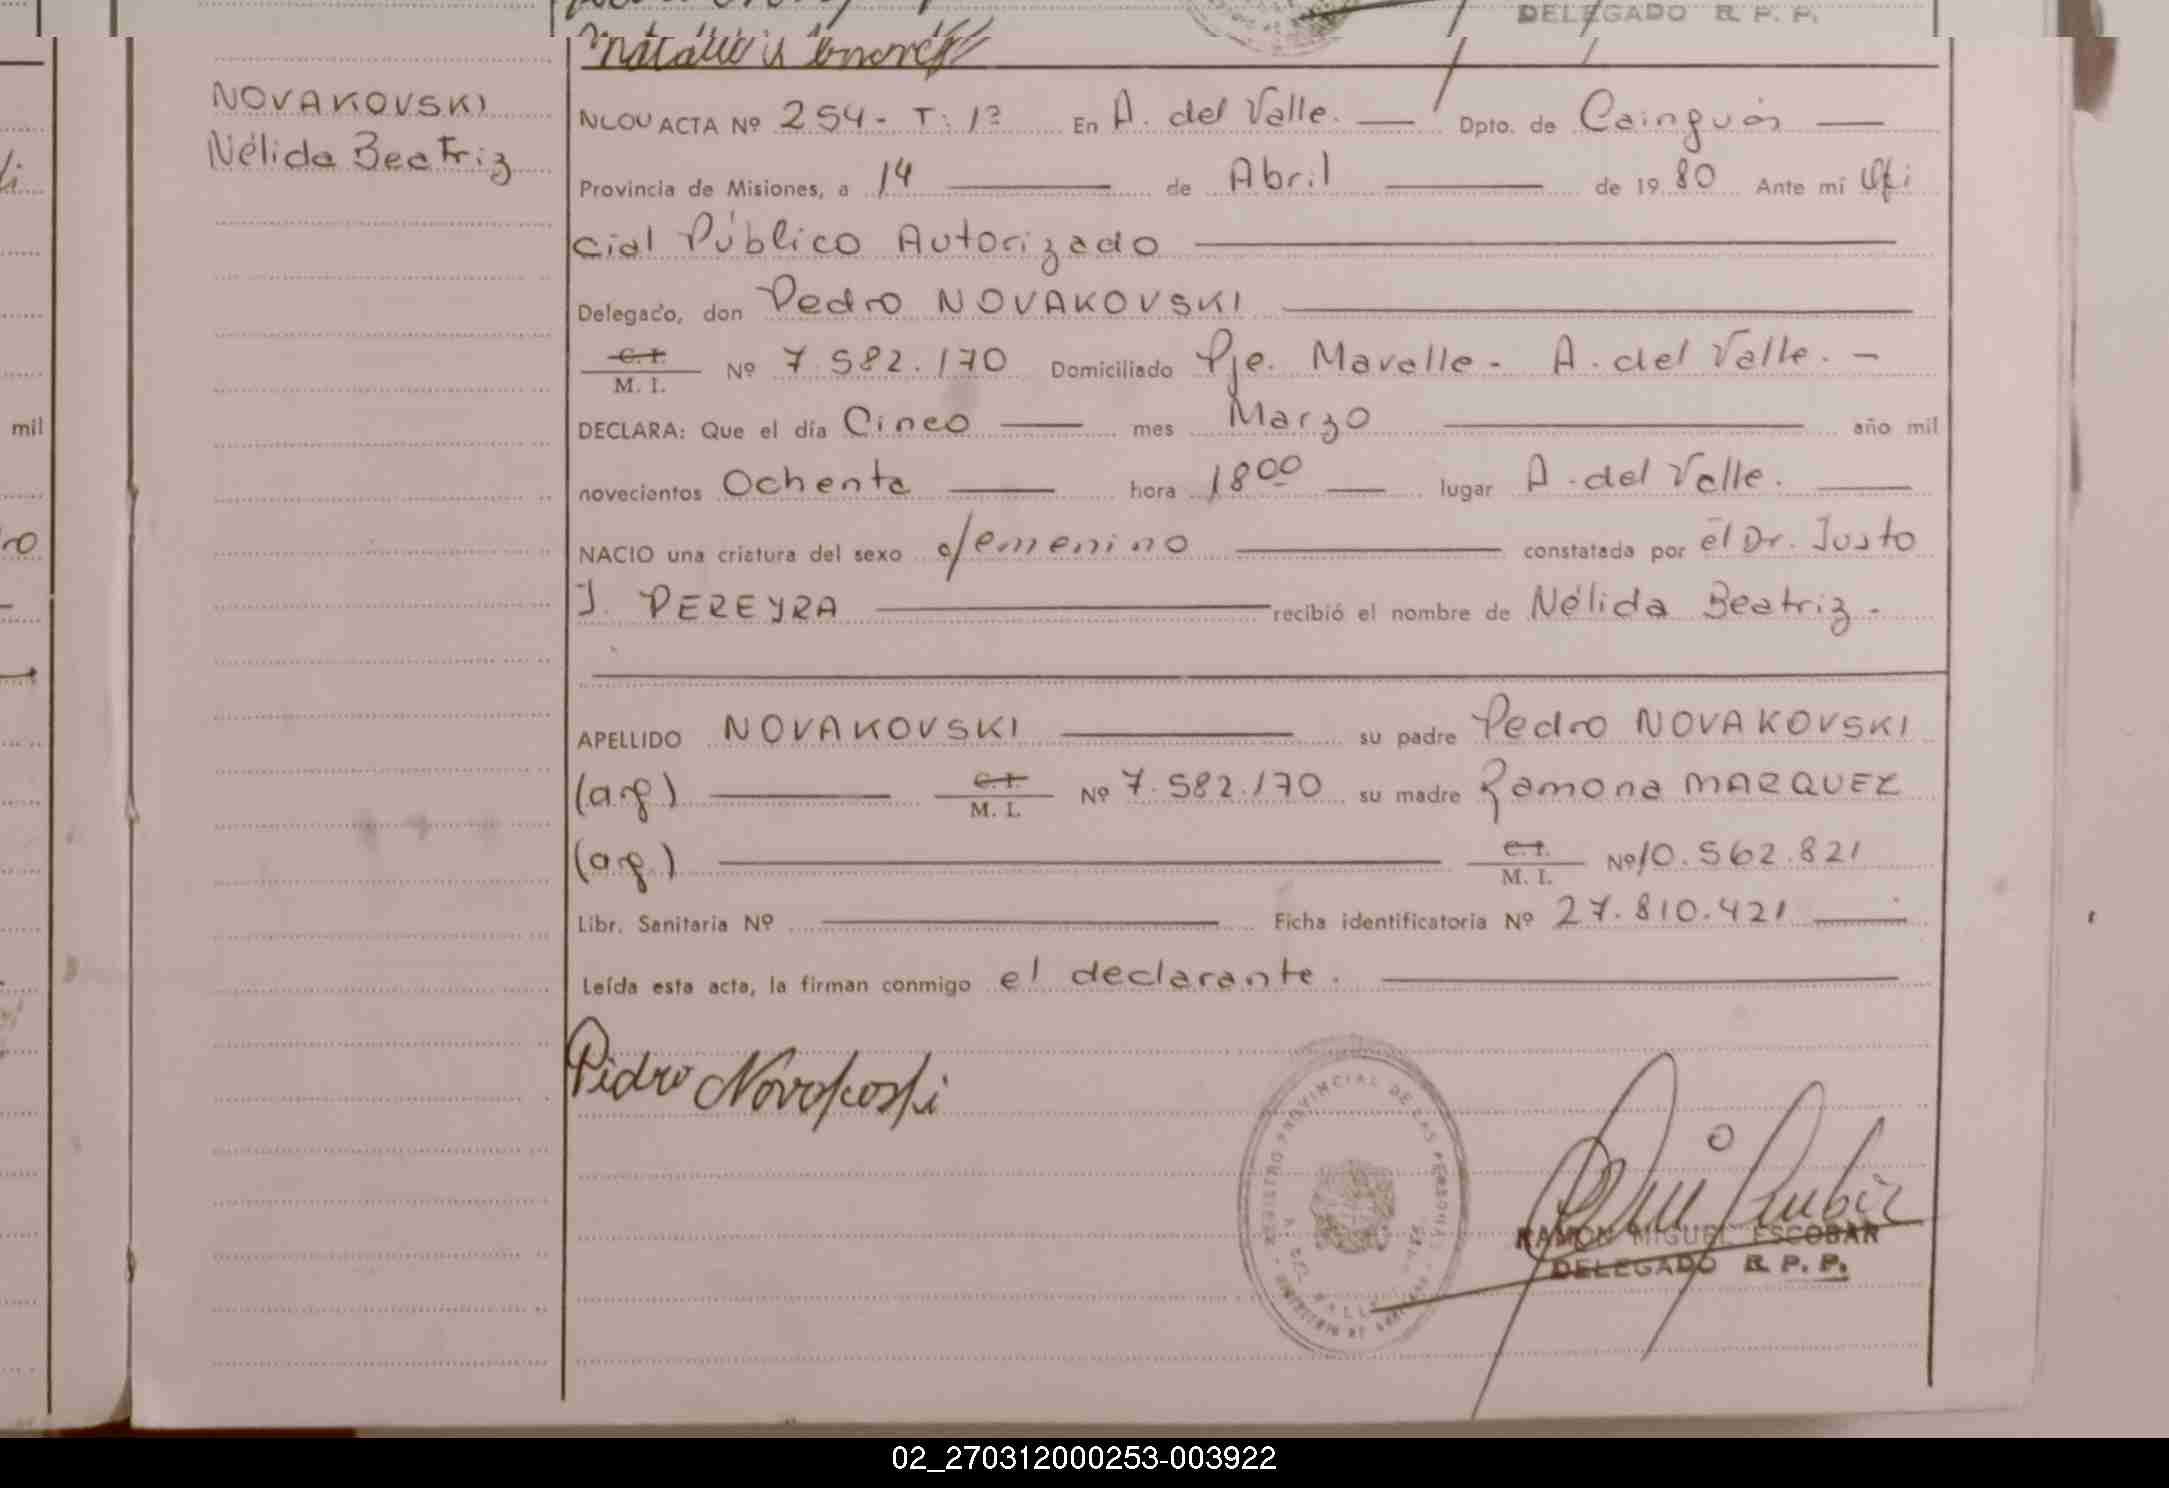 DELEGADO R. P. P.
NOVAKOVSKI
Nélida Beatriz
ACTA Nº 254 - T: 1º En A. del Valle. Dpto. de Cainguás
Provincia de Misiones, a 14 de Abril de 1980 Ante mí Ofi
cial Público Autorizado
Delegado, don Pedro NOVAKOVSKI
C. I.
M. I. Nº 7.582.170 Domiciliado Pje. Mavalle - A. del Valle. -
mil
DECLARA: Que el día Cinco mes Marzo año mil
novecientos Ochenta hora 18 00 lugar A. del Valle.
NACIO una criatura del sexo femenino constatada por el Dr. Justo
J. PEREYRA recibió el nombre de Nélida Beatriz -
APELLIDO NOVAKOVSKI su padre Pedro NOVAKOVSKI
(arg) C. I.
M. I. Nº 7.582.170 su madre Ramona MARQUEZ
(arg.) C. I.
M. I. Nº 10.562.821
Libr. Sanitaria Nº Ficha identificatoria Nº 27.810.421
Leída esta acta, la firman conmigo el declarante.
Pedro Novakoski
REGISTRO PROVINCIAL DE LAS PERSONAS
A. DEL VALLE
RAMON MIGUEL ESCOBAR
DELEGADO R. P. P.
02_270312000253-003922